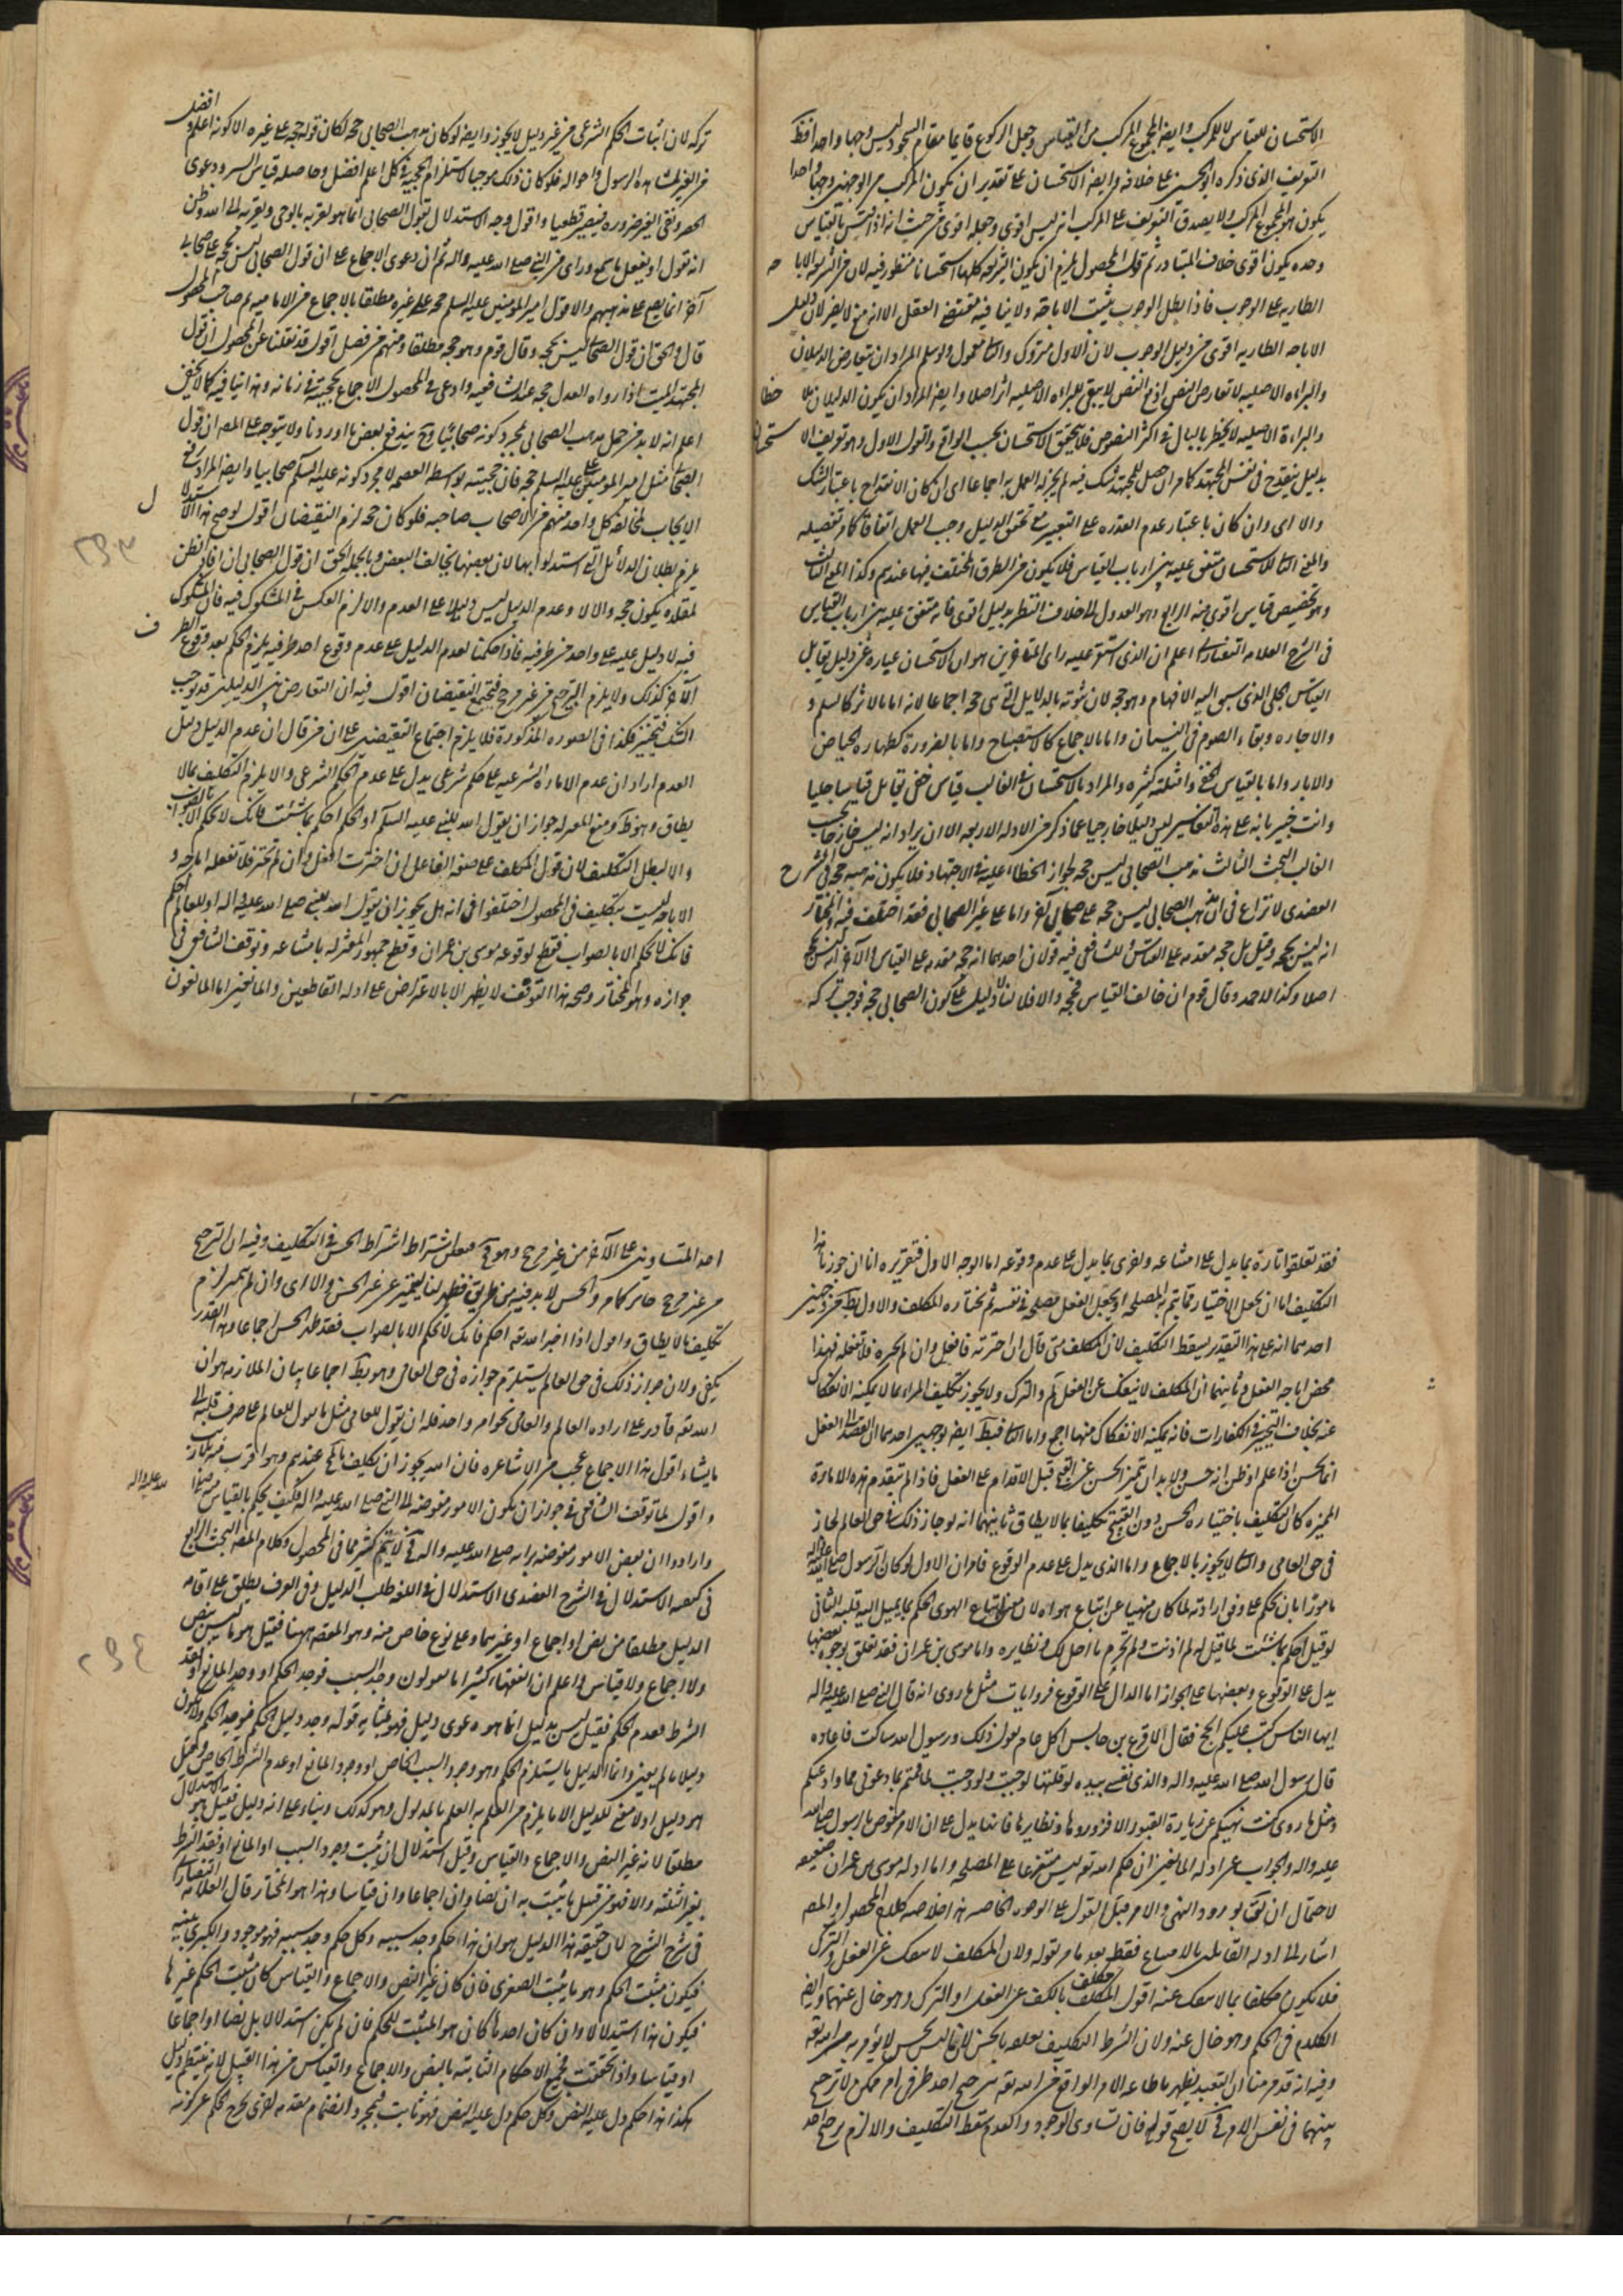 الاستحسان للقياس لا للمركب وايضا المجموع المركب من القياس وجعل الركوع قايما مقام السجود ليس وجها واحدا فقط
التعريف الذى ذكره ابو الحسين على خلافه وايضا الاستحسان على تقدير ان يكون المركب من الوجهين وجها واحدا
يكون هو المجموع المركب ولا يصدق التعريف على المركب اذ ليس اقوى وجعله اقوى من حيث انه اذا قيس بالقياس
وحده يكون اقوى خلاف المتبادر ثم قول المحصول يلزم ان يكون الشريعة كلها استحسانا منظور فيه لان من الشريعة الاباحه
الطاريه على الوجوب فاذا بطل الوجوب يثبت الاباحة ولا ينافيه مقتضى العقل الا انه مع لا يضر لان دليل
الاباحه الطاريه اقوى من دليل الوجوب لان الاول متروك والثانى معمول ولو سلم المراد ان يتعارض الدليلان
والبراءه الاصليه لا تعارض النص اذ مع النص لا يبقى للبراءه الاصليه اثر اصلا وايضا المراد ان يكون الدليلان
والبراءة الاصلية لا يخطر بالبال فى اكثر النصوص فلا يتحقق الاستحسان بحسب الواقع والقول الاول وهو تعريف الاستحسان
بدليل ينقدح فى نفس المجتهد كما مر ان حصل للمجتهد شك فيه لم يجز له العمل به اجماعا اى ان كان الانقداح باعتبار الشك
والا اى وان كان باعتبار عدم القدره على التعبير مع تحقق الدليل وجب العمل اتفاقا كما مر تفصيله
والمعنى الثانى للاستحسان متفق عليه بين ارباب القياس فلا يكون من الطرق المختلف فيها عندهم وكذا المعنى الثالث
وهو تخصيص قياس اقوى منه الرابع وهو العدول الى خلاف النظر بدليل اقوى فانه متفق عليه بين ارباب القياس
فى الشرح العلامه التفتازانى اعلم ان الذى استقر عليه راى المتاخرين هو ان الاستحسان عباره عن دليل يقابل
القياس الجلى الذى سبق اليه الافهام وهو حجة لان ثبوته بالدلايل التى هى حجه اجماعا لانه اما بالاثر كالسلم و
والاجاره وبقاء الصوم فى النسيان واما بالاجماع كالاستصناع واما بالضرورة كطهاره الحياض
والابار واما بالقياس الخفى وامثلته كثيره والمراد بالاستحسان فى الغالب قياس خفى يقابل قياسا جليا
وانت خبير بانه على هذه التفاسير ليس دليلا خارجيا عما ذكر من الادله الاربعه الا ان يراد انه ليس خارجا بحسب
الغالب البحث الثالث مذهب الصحابى ليس حجة لجواز الخطاء عليه فى الاجتهاد فلا يكون مذهبه حجه فى الشرح
العضدى لا نزاع فى ان مذهب الصحابى ليس حجة على صحابى آخر واما على غير الصحابى فقد اختلف فيه والمختار
انه ليس بحجه وقيل بل حجه مقدمه على القياس وللشافعى فيه قولان احدهما انه حجه مقدمه على القياس والآخر انه ليس بحجة
اصلا وكذا لاحمد وقال قوم ان خالف القياس فحجة والا فلا لنا لا دليل على كون الصحابى حجة فوجب تركه
تركه لان اثبات الحكم الشرعى من غير دليل لا يجوز وايضا لو كان مذهب الصحابى حجه لكان قوله حجه على غيره الا كونه اعلم وافضل
من الغير لمشاهده الرسول واحواله فلو كان ذلك موجبا لاستلزام الحجية فى كل اعلم افضل وحاصله قياس السبر ودعوى
الحصر ونفى الغير ضروره فيصير قطعيا واقول وجه الاستدلال بقول الصحابى انما هو لقربه بالوحى ولقربه الى الله وظن
انه يقول او يفعل ما سمع وراى من النبى صلى الله عليه واله ثم ان دعوى الاجماع على ان قول الصحابى ليس بحجه على صحابى
آخر انما يصح على مذهبهم والا قول امير المومنين عليه السلم حجه على غيره مطلقا بالاجماع من الاماميه ثم صاحب المحصول
قال والحق ان قول الصحابى ليس بحجه وقال قوم وهو حجه مطلقا ومنهم من فصل اقول قد نقلنا عن المحصول ان قول
المجتهد الميت اذا رواه العدل حجه عند الشافعيه وادعى فى المحصول الاجماع بحجيته فى زمانه وهذا ينافيه كما لا يخفى
اعلم انه لا بد من حمل مذهب الصحابى لمجرد كونه صحابيا وح يندفع بعض ما اوردنا ولا يتوجه على المصه ان قول
الصحابى مثل امير المومنين على عليه السلم حجه فان حجيته بواسطه العصمه لا مجرد كونه عليه السلم صحابيا وايضا المراد رفع
الايجاب لمخالفه كل واحد منهم من الاصحاب صاحبه فلو كان حجه لزم النقيضان اقول لو صح هذا الاستدلال
يلزم بطلان الدلائل التى استدلوا بها لان بعضها يخالف البعض وبالجمله الحق ان قول الصحابى ان افاد الظن
لمقلده يكون حجه والا لا وعدم الدليل ليس دليلا على العدم والا لزم العكس فى المشكوك فيه فان المشكوك
فيه لا دليل عليه على واحد من طرفيه فاذا حكمنا لعدم الدليل على عدم وقوع احد طرفيه يلزم الحكم بعد وقوع الطرف
الآخر كذلك ولا يلزم الترجيح من غير مرجح فيجتمع النقيضان اقول فيه ان التعارض بين الدليلين قد يوجب
الشك فتخيير فكذا فى الصوره المذكورة فلا يلزم اجتماع النقيضين على ان من قال ان عدم الدليل دليل
العدم اراد ان عدم الاماراة الشرعيه على حكم شرعى يدل على عدم الحكم الشرعى والا يلزم التكليف بما لا
يطاق وهو ظ ومنع المعتزله جواز ان يقول الله للنبى عليه السلم او الحكم احكم بما شئت فانك لا تحكم الا بالصواب
والا لبطل التكليف لان قول المكلف على صفه الفاعل ان اخترت افعل وان لم تختر فلا تفعله اباحه و
الاباحه ليست بتكليف فى المحصول اختلفوا فى انه هل يجوز ان يقول الله لنبى صلى الله عليه واله او للعالم احكم
فانك لا تحكم الا بالصواب فقطع لوقوعه موسى بن عمران وقطع جمهور المعتزله بامتناعه وتوقف الشافعى فى
جوازه وهو المختار وصحه هذا التوقف لا يظهر الا بالاعتراض على ادله القاطعين والمانعين اما المانعون
فقد تعلقوا تارة بما يدل على امتناعه واخرى بما يدل على عدم وقوعه اما الوجه الاول فتقريره انا ان جوزنا هذا
التكليف اما ان نجعل الاختيار مما يتم به المصلحه او يجعل الفعل مصلحه فى نفسه ثم نختاره المكلف والاول بط من وجهين
احدهما انه على هذا التقدير يسقط التكليف لان المكلف متى قال ان اخترته فافعل وان لم تختره فلا تفعله فهذا
محض اباحه الفعل وثانيهما ان المكلف لا ينفك عن الفعل ثم والترك ولا يجوز تكليف المراء ما لا يمكنه الانفكاك
عنه بخلاف التخيير فى الكفارات فانه يمكنه الانفكاك منها اجمع واما الثانى فبط ايضا لوجهين احدهما ان القصد الى الفعل
انما يحسن اذا علم او ظن انه حسن ولا بد ان يتميز الحسن عن القبيح قبل الاقدام على الفعل فاذا لم يتقدم هذه الاماره
المميزه كان التكليف باختياره الحسن دون القبيح تكليفا بما لا يطاق ثانيهما انه لو جاز ذلك فى حق العالم لجاز
فى حق العامى والثانى لا يجوز بالاجماع واما الذى يدل على عدم الوقوع فامران الاول لو كان الرسول صلى الله عليه واله
مامورا بان يحكم على وفق ارادته لما كان منهيا عن اتباع هواه لان معنى اتباع الهوى الحكم بما يميل اليه قلبه الثانى
لو قيل احكم بما شئت لما قيل له لم اذنت ولم تحرم ما احل لك ونظايره واما موسى بن عمران فقد تعلق بوجوه بعضها
يدل على الوقوع وبعضها على الجواز اما الدال على الوقوع فروايات مثل ما روى انه قال النبى صلى الله عليه واله
ايها الناس كتب عليكم الحج فقال الاقرع بن حابس اكل عام يقول ذلك ورسول الله ساكت فاعاده
قال رسول الله صلى الله عليه واله والذى نفسى بيده لو قلتها لوجبت ولو وجبت لما قمتم بها دعونى مما ودعتكم
ومثل ما روى كنت نهيتكم عن زيارة القبور الا فزوروها ونظايرها فانها يدل على ان الامر مفوض الى رسول صلى الله
عليه واله والجواب عن ادله المانعين ان حكم الله تعه ليس متفرعا على المصلحه واما ادله موسى بن عمران ضعيفه
لاحتمال ان يكون ورود النهى والامر قبل القول على الوجوه الخاصه هذا خلاصه كلام المحصول والمصه
اشار الى ادله القايلين بالامتناع فقط بعد ما مر لقوله ولان المكلف لا ينفك عن الفعل والترك
فلا يكون مكلفا بما لا ينفك عنه اقول المكلف مكلف بالكف عن الفعل او الترك وهو خال عنهما وايضا
الكلام فى الحكم وهو خال عنه ولان الشرط التكليف تعلقه بالحسن لان ما ليس بحسن لا يؤمر به من الله تعه
وفيه انه قد مر منا ان التعبد يظهر باطاعه الامر الواقع من الله تعه بترجيح احد طرفى امر ممكن لا ترجيح
بينهما فى نفس الامر فح لا يصح قوله فان تساوى الوجود والعدم سقط التكليف والا لزم ترجيح احد
احد المتساويين على الآخر من غير مرجح وهو مح فعلى اشتراط اشتراط الحسن فى التكليف وفيه ان الترجيح
من غير مرجح جائز كما مر والحسن لا بد فيه من طريق فظهر لنا يتميز عن غير الحسن والا اى وان لم يتميز لزم
تكليف ما لا يطاق واقول اذا اخبر الله تعه احكم فانك لا تحكم الا بالصواب فقد ظهر الحسن اجماعا وهذا القدر
يكفى ولان جواز ذلك فى حق العالم يستلزم جوازه فى حق العامى وهو بط اجماعا بيان الملازمه ان
الله تعه قادر على اراده العالم والعامى بجوابه واحد فله ان يقول للعامى مثل ما يقول للعالم على صرف قلبه الى
ما يشاء اقول هذا الاجماع عجب من الاشاعره فان الله يجوز ان يكلف بالمح عندهم وهو اقرب منه بمراتب
واقول لما توقف الشافعى فى جواز ان يكون الامور مفوضه الى النبى صلى الله عليه واله فكيف يحكم بالقياس منه صلى الله عليه واله
وارادوا ان بعض الامور مفوضه برايه صلى الله عليه واله فح لا يتم كثير مما فى المحصول وكلام المصه البحث الرابع
فى كيفيه الاستدلال فى الشرح العضدى الاستدلال فى اللغه طلب الدليل وفى العرف يطلق على اقامه
الدليل مطلقا من نص او اجماع او غيرهما وعلى نوع خاص منه وهو المقصه ههنا فقيل هو ما ليس بنص
ولا اجماع ولا قياس واعلم ان الفقهاء كثيرا ما يقولون وجد السبب فوجد الحكم او وجد المانع او فقد
الشرط فعدم الحكم فقيل ليس بدليل انما هو دعوى دليل فهو بمثابه قوله وجد دليل الحكم فيوجد الحكم ولا يكون
دليلا ما لم يعين وانما الدليل ما يستلزم الحكم وهو وجود السبب الخاص او وجود المانع او عدم الشرط الخاص وقيل
هو دليل اذ لا معنى للدليل الا ما يلزم من العلم به العلم بالمدلول وهو كذلك وبناء على انه دليل فقيل هو استدلال
مطلقا لانه غير النص والاجماع والقياس وقيل استدلال ان ثبت وجود السبب او المانع او فقد الشرط
بغير الثلثه والا فهو من قبيل ما يثبت به ان نصا وان اجماعا وان قياسا وهذا هو المختار قال العلامه التفتازانى
فى شرح الشرح لان حقيقه هذا الدليل هو ان هذا حكم وجد سببه وكل حكم وجد سببه فهو موجود والكبرى بينه
فيكون مثبت الحكم وهو ما يثبت الصغرى فان كان غير النص والاجماع والقياس كان مثبت الحكم غيرها
فيكون هذا استدلالا وان كان احدها كان هو المثبت للحكم فان لم يكن استدلالا بل نصا او اجماعا
او قياسا واذا تحققت فجميع الاحكام الثابته بالنص والاجماع والقياس من هذا القبيل لانه ينتظم دليل
هكذا هذا حكم دل عليه النص وكل حكم دل عليه النص فهو ثابت فبمجرد انضمام مقدمه اخرى لا يخرج الحكم عن كونه